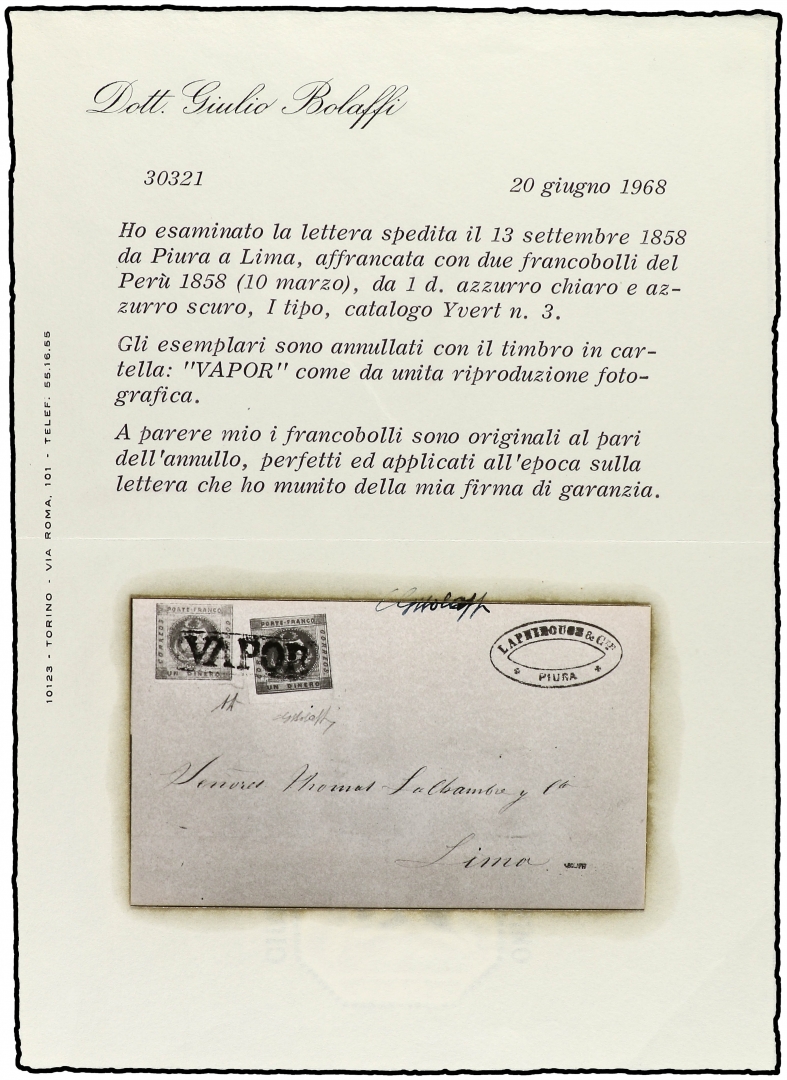 Dott. Giulio Bolaffi
30321
20 giugno 1968
Ho esaminato la lettera spedita il 13 settembre 1858
da Piura a Lima, affrancata con due francobolli del
Perù 1858 (10 marzo), da 1 d. azzurro chiaro e az-
zurro scuro, I tipo, catalogo Yvert n. 3.
Gli esemplari sono annullati con il timbro in car-
tella: "VAPOR" come da unita riproduzione foto-
grafica.
A parere mio i francobolli sono originali al pari
dell'annullo, perfetti ed applicati all'epoca sulla
lettera che ho munito della mia firma di garanzia.
10123 - TORINO - VIA ROMA, 101 - TELEF. 55.16.55
PORTE FRANCO
CORREOS
UN DINERO
PORTE FRANCO
CORREOS
UN DINERO
VAPOR
& Cie
PIURA
Señores Thomas LaChambre y Cia
Lima